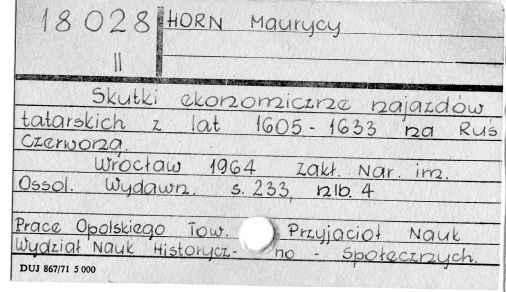 18 028 HORN Maurycy
II
Skutki ekonomiczne najazdów
tatarskich z lat 1605 - 1633 na Ruś
Czerwoną.
Wrocław 1964 Zakł. Nar. im.
Ossol. Wydawn. s. 233, nlb. 4
Prace Opolskiego Tow. Przyjaciół Nauk
Wydział Nauk Historycz- no - Społecznych.
DUJ 867/71 5 000